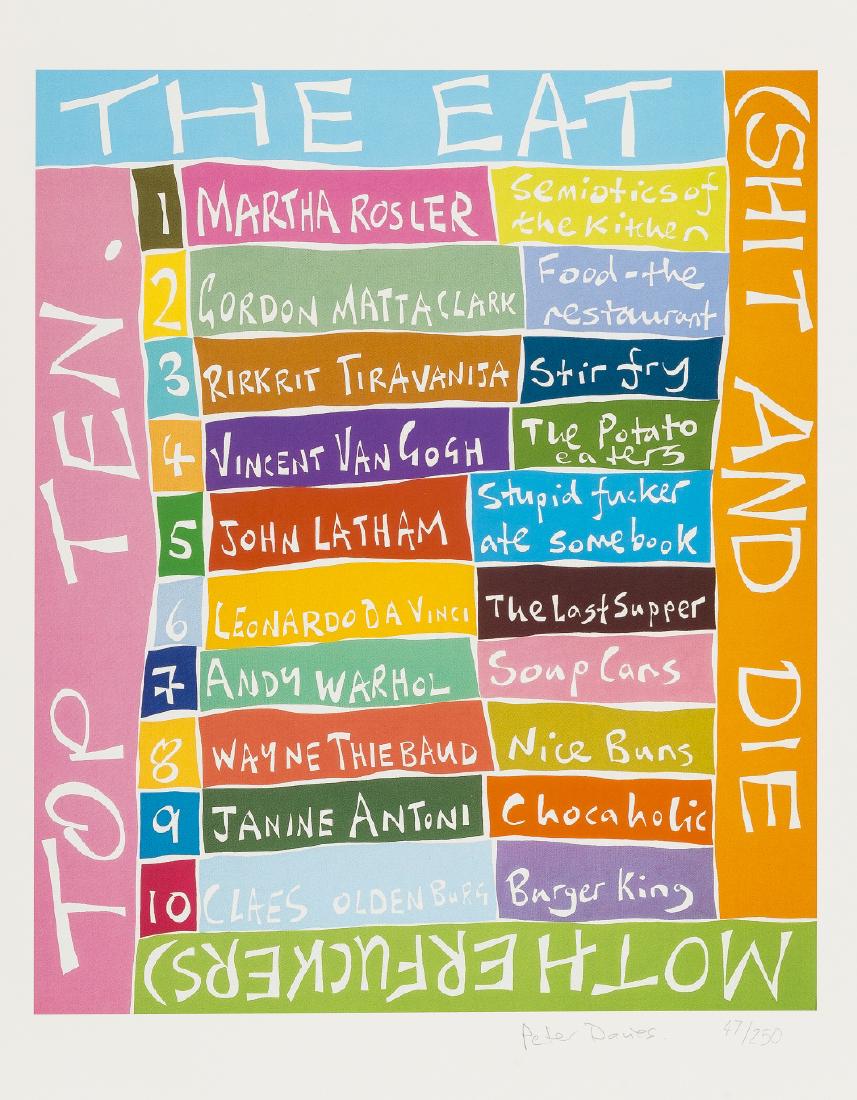 THE EAT
(SHIT AND DIE
MOTHERFUCKERS)
TOP TEN.
1 MARTHA ROSLER Semiotics of
the Kitchen
2 GORDON MATTA CLARK Food-the
restaurant
3 RIRKRIT TIRAVANIJA Stir fry
4 VINCENT VAN GOGH The Potato
eaters
5 JOHN LATHAM Stupid fucker
ate somebook
6 LEONARDO DA VINCI The Last Supper
7 ANDY WARHOL Soup Cans
8 WAYNE THIEBAUD Nice Buns
9 JANINE ANTONI Chocaholic
10 CLAES OLDENBURG Burger King
Peter Davies. 47/250